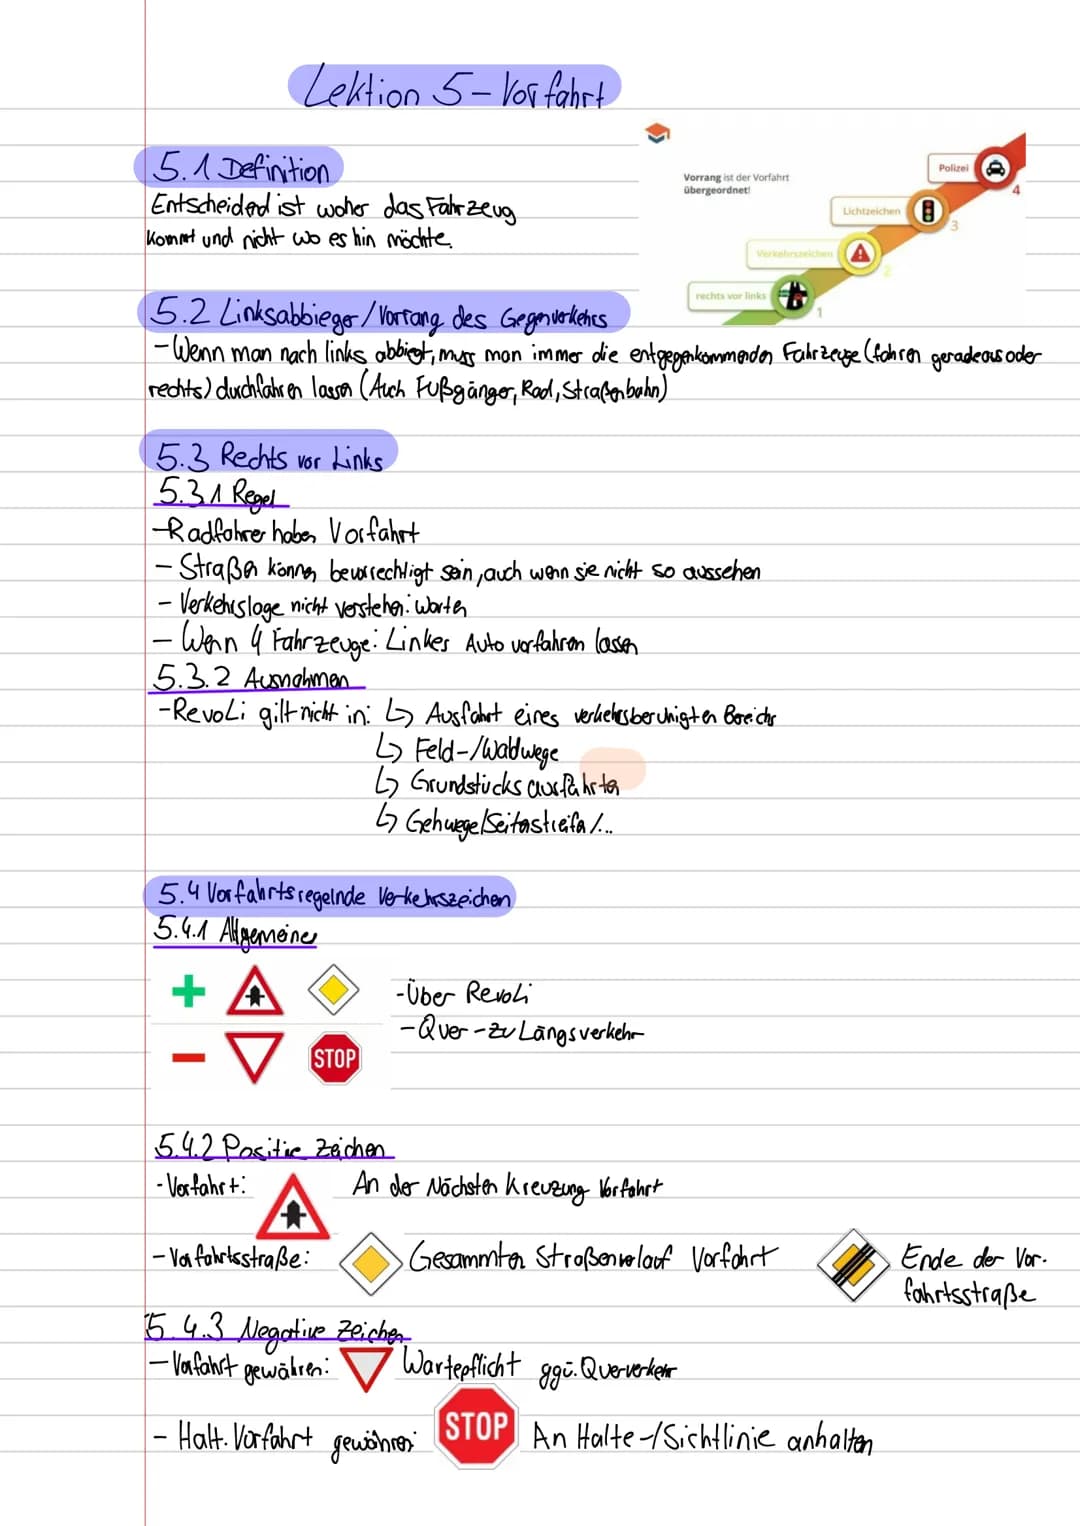 Lektion 5 - Vorfahrt
5.1 Definition
Entscheidend ist woher das Fahrzeug
kommt und nicht wo es hin möchte.
Vorrang ist der Vorfahrt
übergeordnet!
Polizei
4
Lichtzeichen
3
Verkehrszeichen
2
rechts vor links
1
5.2 Linksabbieger/Vorrang des Gegenverkehrs
- Wenn man nach links abbiegt, muss man immer die entgegenkommenden Fahrzeuge (fahren geradeaus oder
rechts) durchfahren lassen (Auch Fußgänger, Rad, Straßenbahn)
5.3 Rechts vor Links
5.3.1 Regel
- Radfahrer haben Vorfahrt
- Straßen können bevorrechtigt sein, auch wenn sie nicht so aussehen
- Verkehrslage nicht verstehen: Warten
- Wenn 4 Fahrzeuge: Linkes Auto vorfahren lassen
5.3.2 Ausnahmen
- RevoLi gilt nicht in: ↳ Ausfahrt eines verkehrsberuhigten Bereichs
↳ Feld-/Waldwege
↳ Grundstücksausfahrten
↳ Gehwege/Seitenstreifen/...
5.4 Vorfahrtsregelnde Verkehrszeichen
5.4.1 Allgemeines
- Über Revoli
- Quer - zu Längsverkehr
STOP
5.4.2 Positive Zeichen
- Vorfahrt: An der Nächsten Kreuzung Vorfahrt
- Vorfahrtsstraße: Gesammten Straßenverlauf Vorfahrt Ende der Vor-
fahrtsstraße
5.4.3 Negative Zeichen
- Vorfahrt gewähren: Wartepflicht ggü. Querverkehr
- Halt. Vorfahrt gewähren: STOP An Halte-/Sichtlinie anhalten